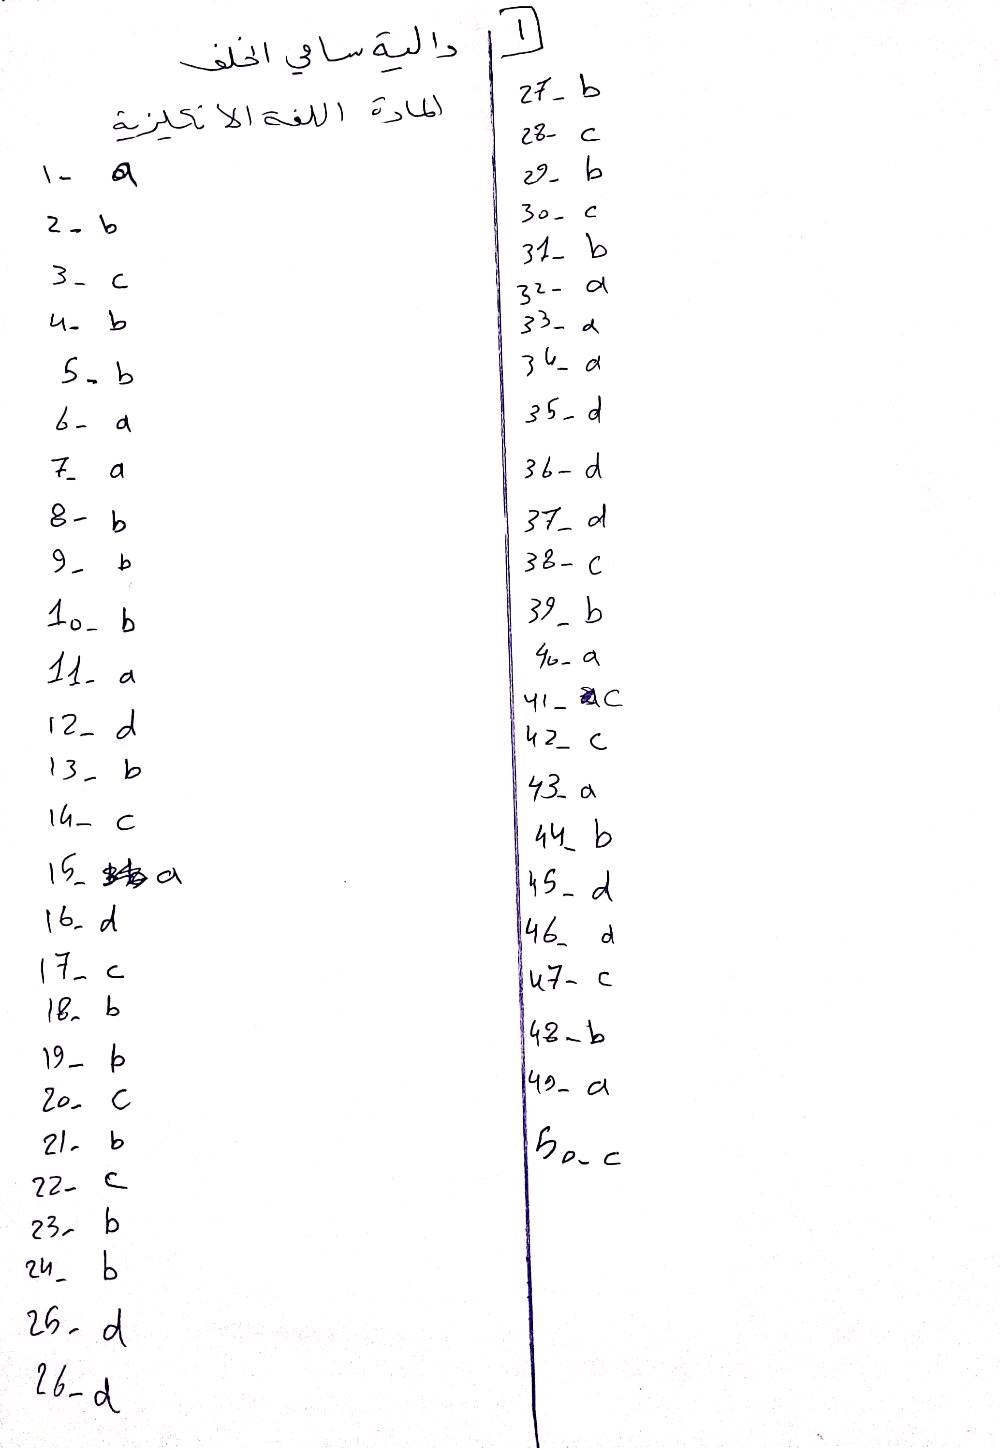 دالية سامي الخلف
المادة اللغة الانكليزية
1- a
2- b
3- c
4- b
5- b
6- a
7- a
8- b
9- b
10- b
11- a
12- d
13- b
14- c
15- a
16- d
17- c
18- b
19- b
20- c
21- b
22- c
23- b
24- b
25- d
26- d
1
27- b
28- c
29- b
30- c
31- b
32- a
33- a
34- a
35- d
36- d
37- d
38- c
39- b
40- a
41- c
42- c
43- a
44- b
45- d
46- d
47- c
48- b
49- a
50- c